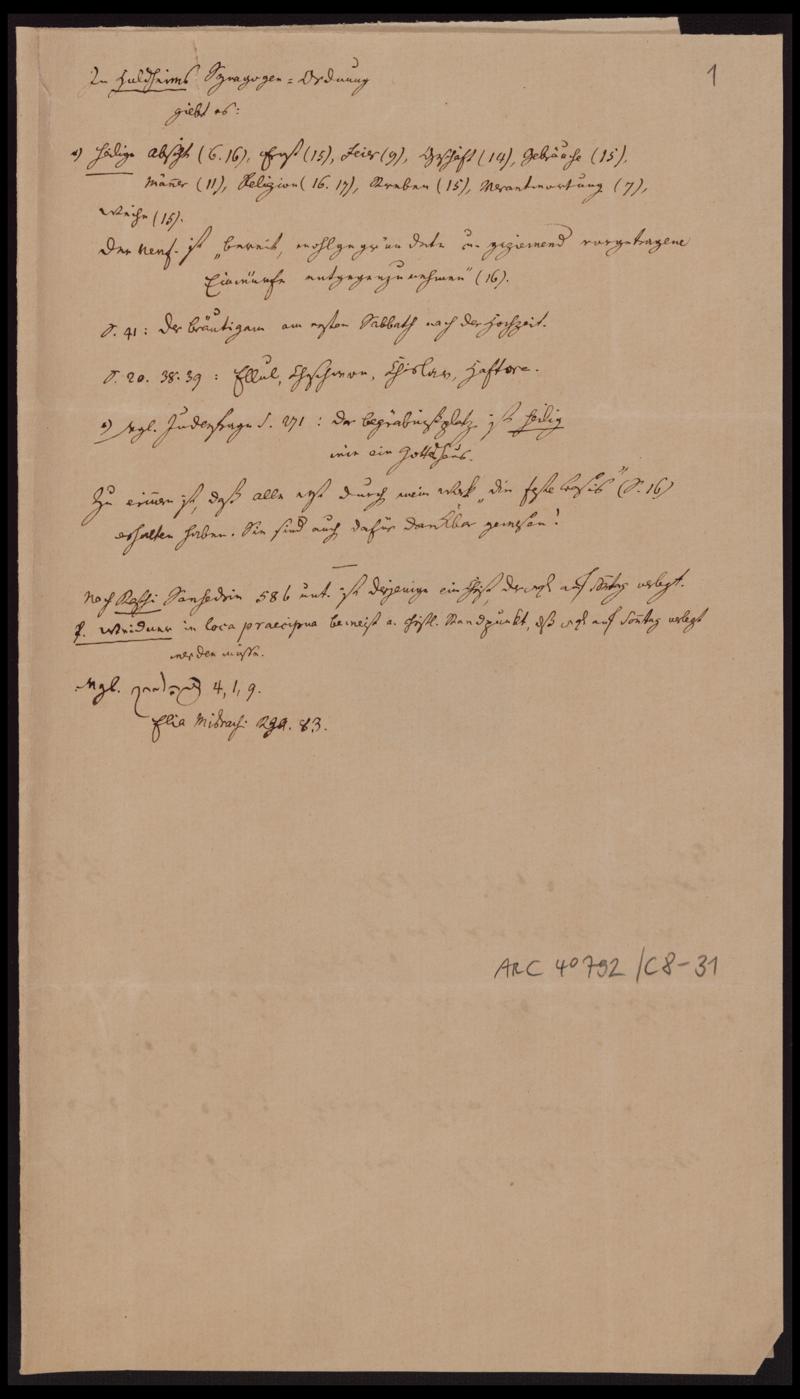 In Holdheims Synagogen=Ordnung
giebt es:
1
*) heilige Absicht (6. 16), Ernst (15), Feier (9), Geschäft (14), Gebräuche (15),
Männer (11), Religion (16. 17), Streben (15), Verantwortung (7),
Weihe (15).
Der Verf. ist „bereit, wohlgegründete u. geziemend vorgetragene
Einwürfe entgegenzunehmen" (16).
S. 41: Der Bräutigam am ersten Sabbath nach der Hochzeit.
S. 20. 38. 39: Ellul, Cheschwan, Chislav, Haftora.
*) Vgl. Judenfrage S. 271: der Begräbnißplatz ist heilig
wie ein Gotteshaus.
Zu erinnern ist, daß alle erst durch mein Werk „die feste Basis" (S. 16)
erhalten haben. Sie sind auch dafür dankbar gewesen!
Nach Raschi Sanhedrin 58b unt. ist derjenige ein Christ, der auf Sonntag verlegt.
P. Weidner in loca praecipua beweist a. christl. Standpunkt, daß auf Sonntag verlegt
werden müsse.
Vgl. 4, 1, 9.
Elia Misrachi RGA. 83.
ARC 4° 792 /C8-31